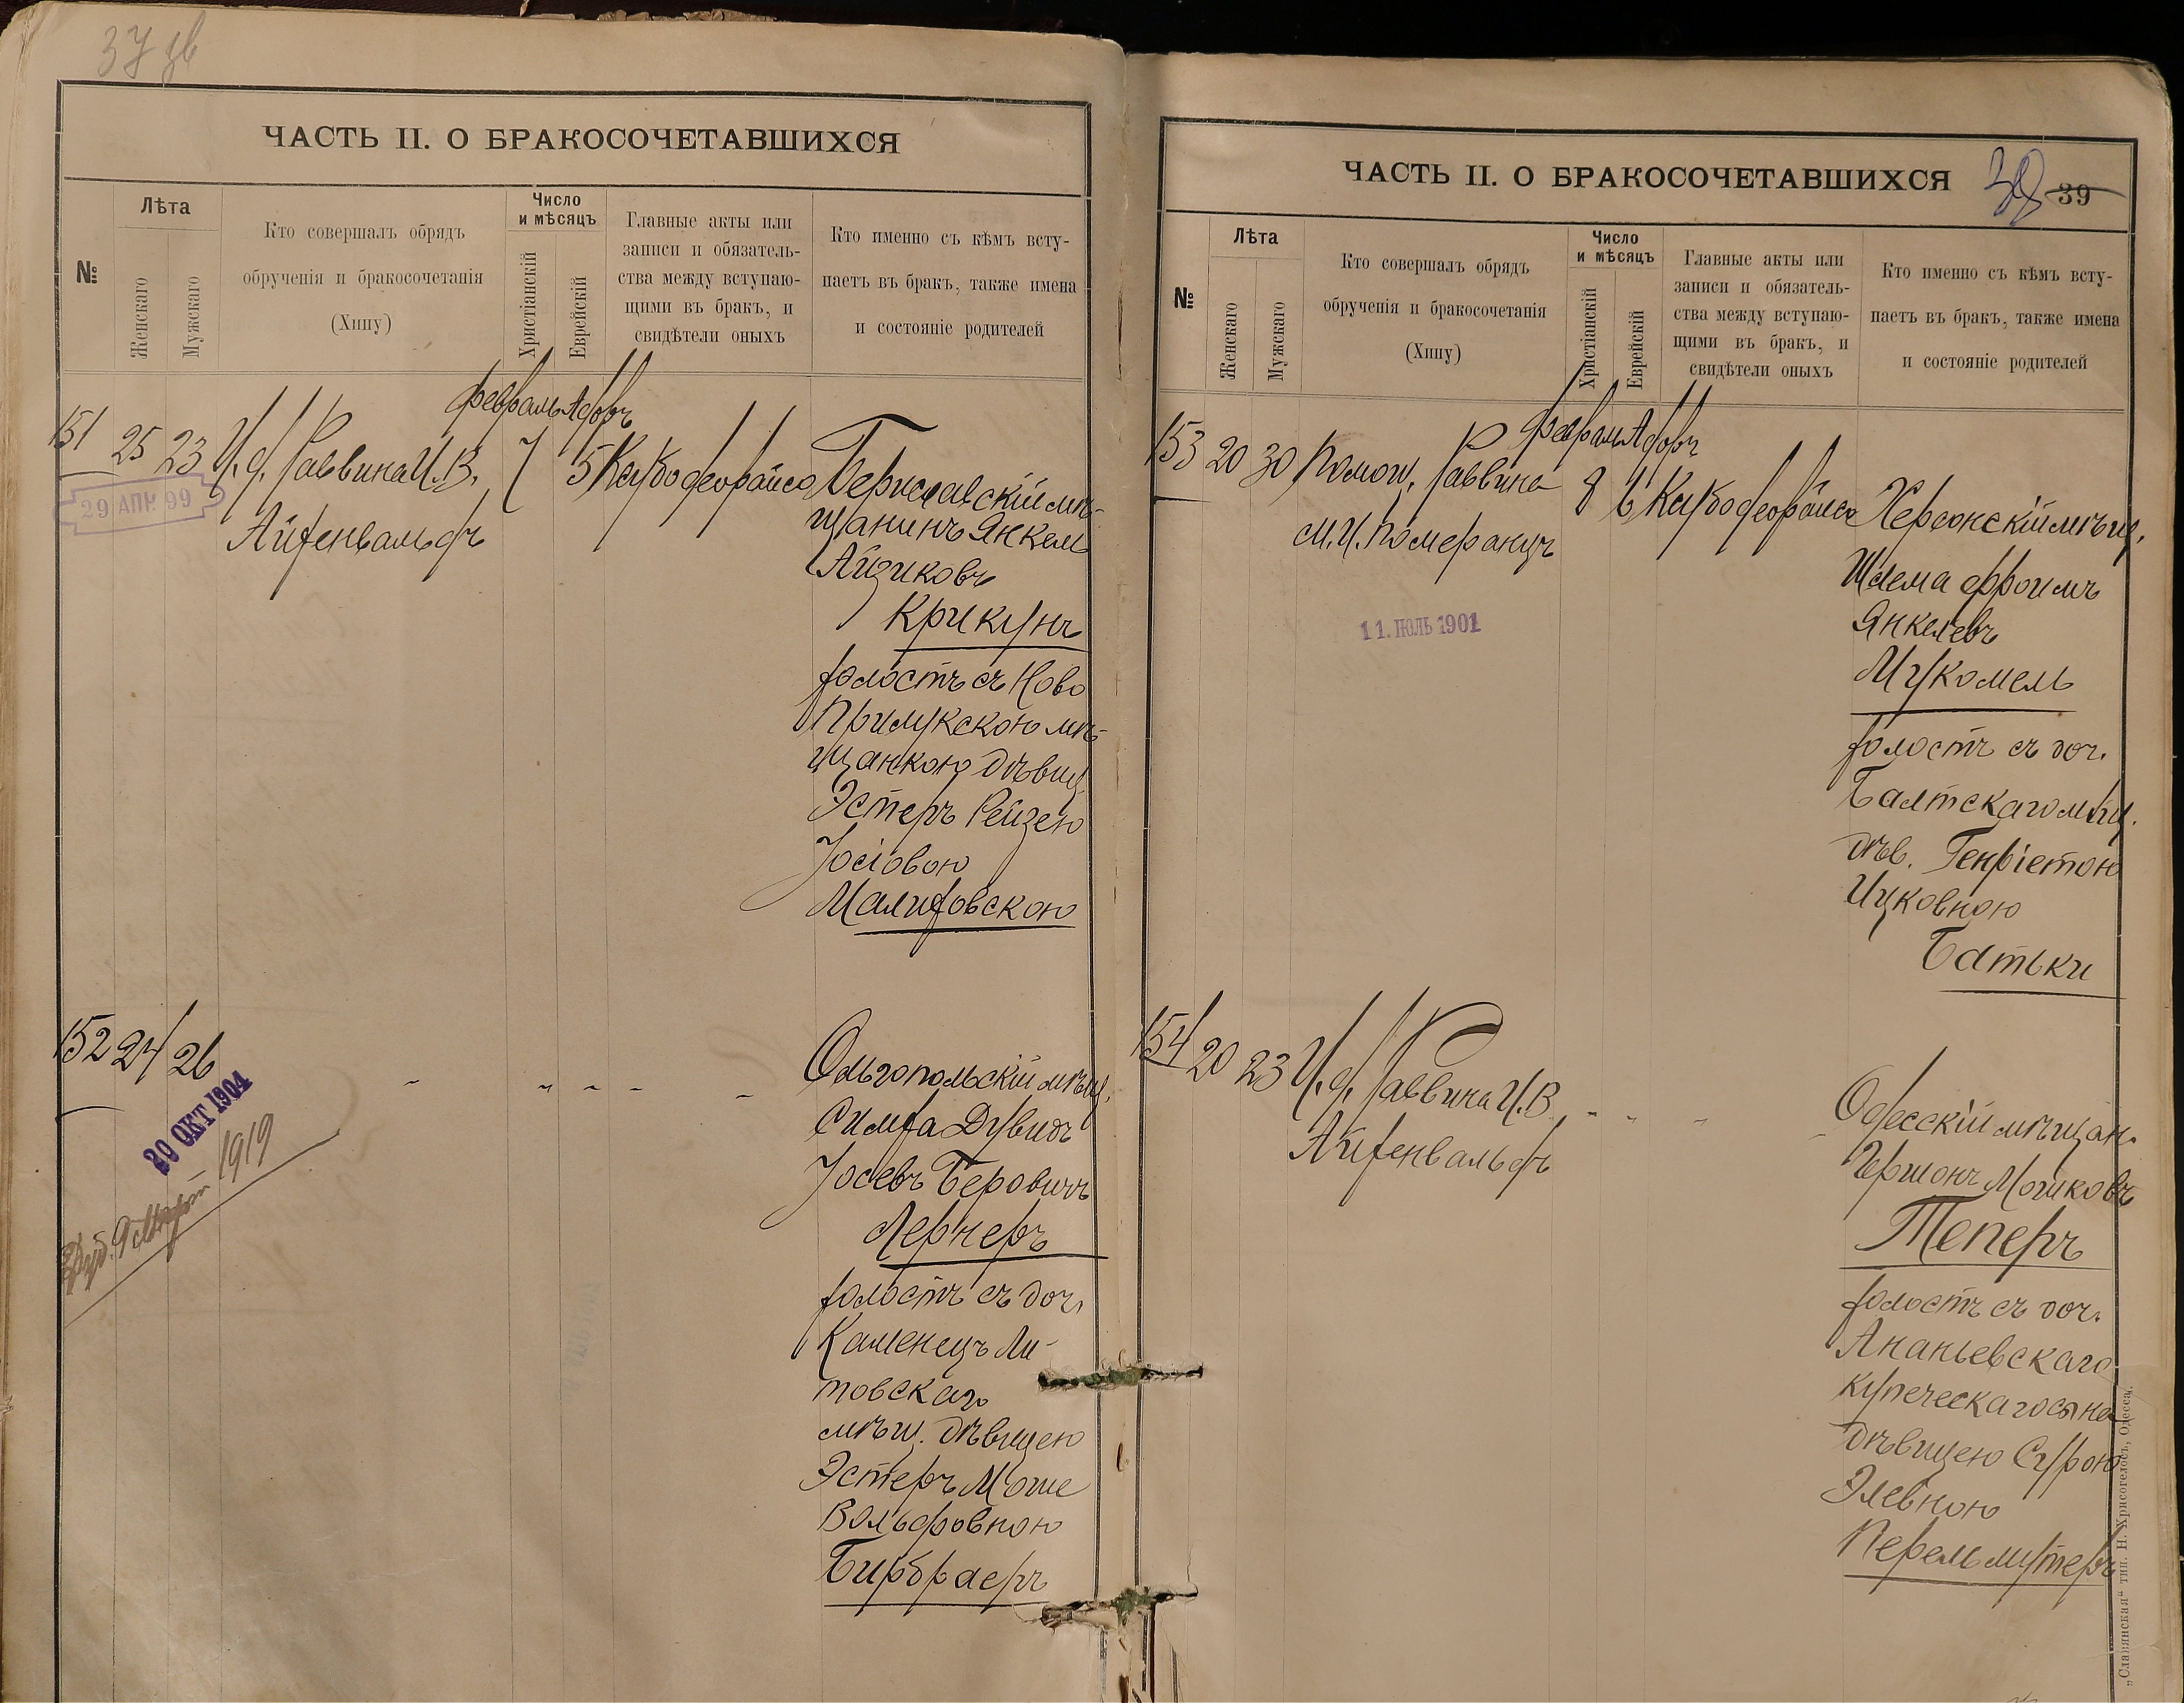 37 зв
ЧАСТЬ II. О БРАКОСОЧЕТАВШИХСЯ
№
Лѣта
Женскаго
Мужскаго
Кто совершалъ обрядъ
обрученія и бракосочетанія
(Хипу)
Число
и мѣсяцъ
Христіанскій
Еврейскій
Главные акты или
записи и обязатель-
ства между вступаю-
щими въ бракъ, и
свидѣтели оныхъ
Кто именно съ кѣмъ всту-
паетъ въ бракъ, также имена
и состояніе родителей
Февраль Адоръ
151 25 23 И. д. Раввина И. В. 7 5
Айхенвальдъ
29 АПР. 99
Бериславскій мѣ-
щанинъ Янкель
Айзиковъ
Крикунъ
холостъ съ Ново
Прилукскою мѣ-
щанкою дѣвиц.
Эстеръ Рейзею
Іосіовою
Малиховскою
152 24 26 - - - - -
20 ОКТ 1904
1919
Ольгопольскій мѣщ.
Симха Дувидъ
Іосевъ Беровичъ
Лернеръ
холостъ съ доч.
Каменецъ Ли-
товскаго
мѣщ. дѣвицею
Эстеръ Моше
Вольфовною
Бирбраеръ
ЧАСТЬ II. О БРАКОСОЧЕТАВШИХСЯ
38 39
№
Лѣта
Женскаго
Мужскаго
Кто совершалъ обрядъ
обрученія и бракосочетанія
(Хипу)
Число
и мѣсяцъ
Христіанскій
Еврейскій
Главные акты или
записи и обязатель-
ства между вступаю-
щими въ бракъ, и
свидѣтели оныхъ
Кто именно съ кѣмъ всту-
паетъ въ бракъ, также имена
и состояніе родителей
Февраль Адоръ
153 20 30 Помощ. Раввина 8 6
М. И. Померанцъ
11. ІЮЛЬ 1901
Херсонскій мѣщ.
Шлема Фроимъ
Янкелевъ
Мукомель
холостъ съ доч.
Балтскаго мѣщ.
дѣв. Генріетою
Ицковною
Батьки
154 20 23 И. д. Раввина И. В. - - - -
Айхенвальдъ
Одесскій мѣщан.
Гершонъ Мошковъ
Теперъ
холостъ съ доч.
Ананьевскаго
купеческаго сына
дѣвицею Сурою
Элевною
Перельмутеръ
„Славянская“ тип. Н. Хрисогелосъ, Одесса.